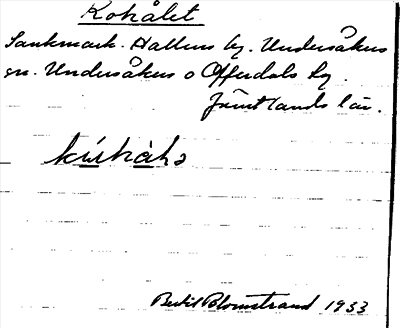 Kohålet
Sankmark. Hallens by. Undersåkers
sn. Undersåkers o Offerdals tg.
Jämtlands län.
kúhàlə
Bertil Blomstrand 1933